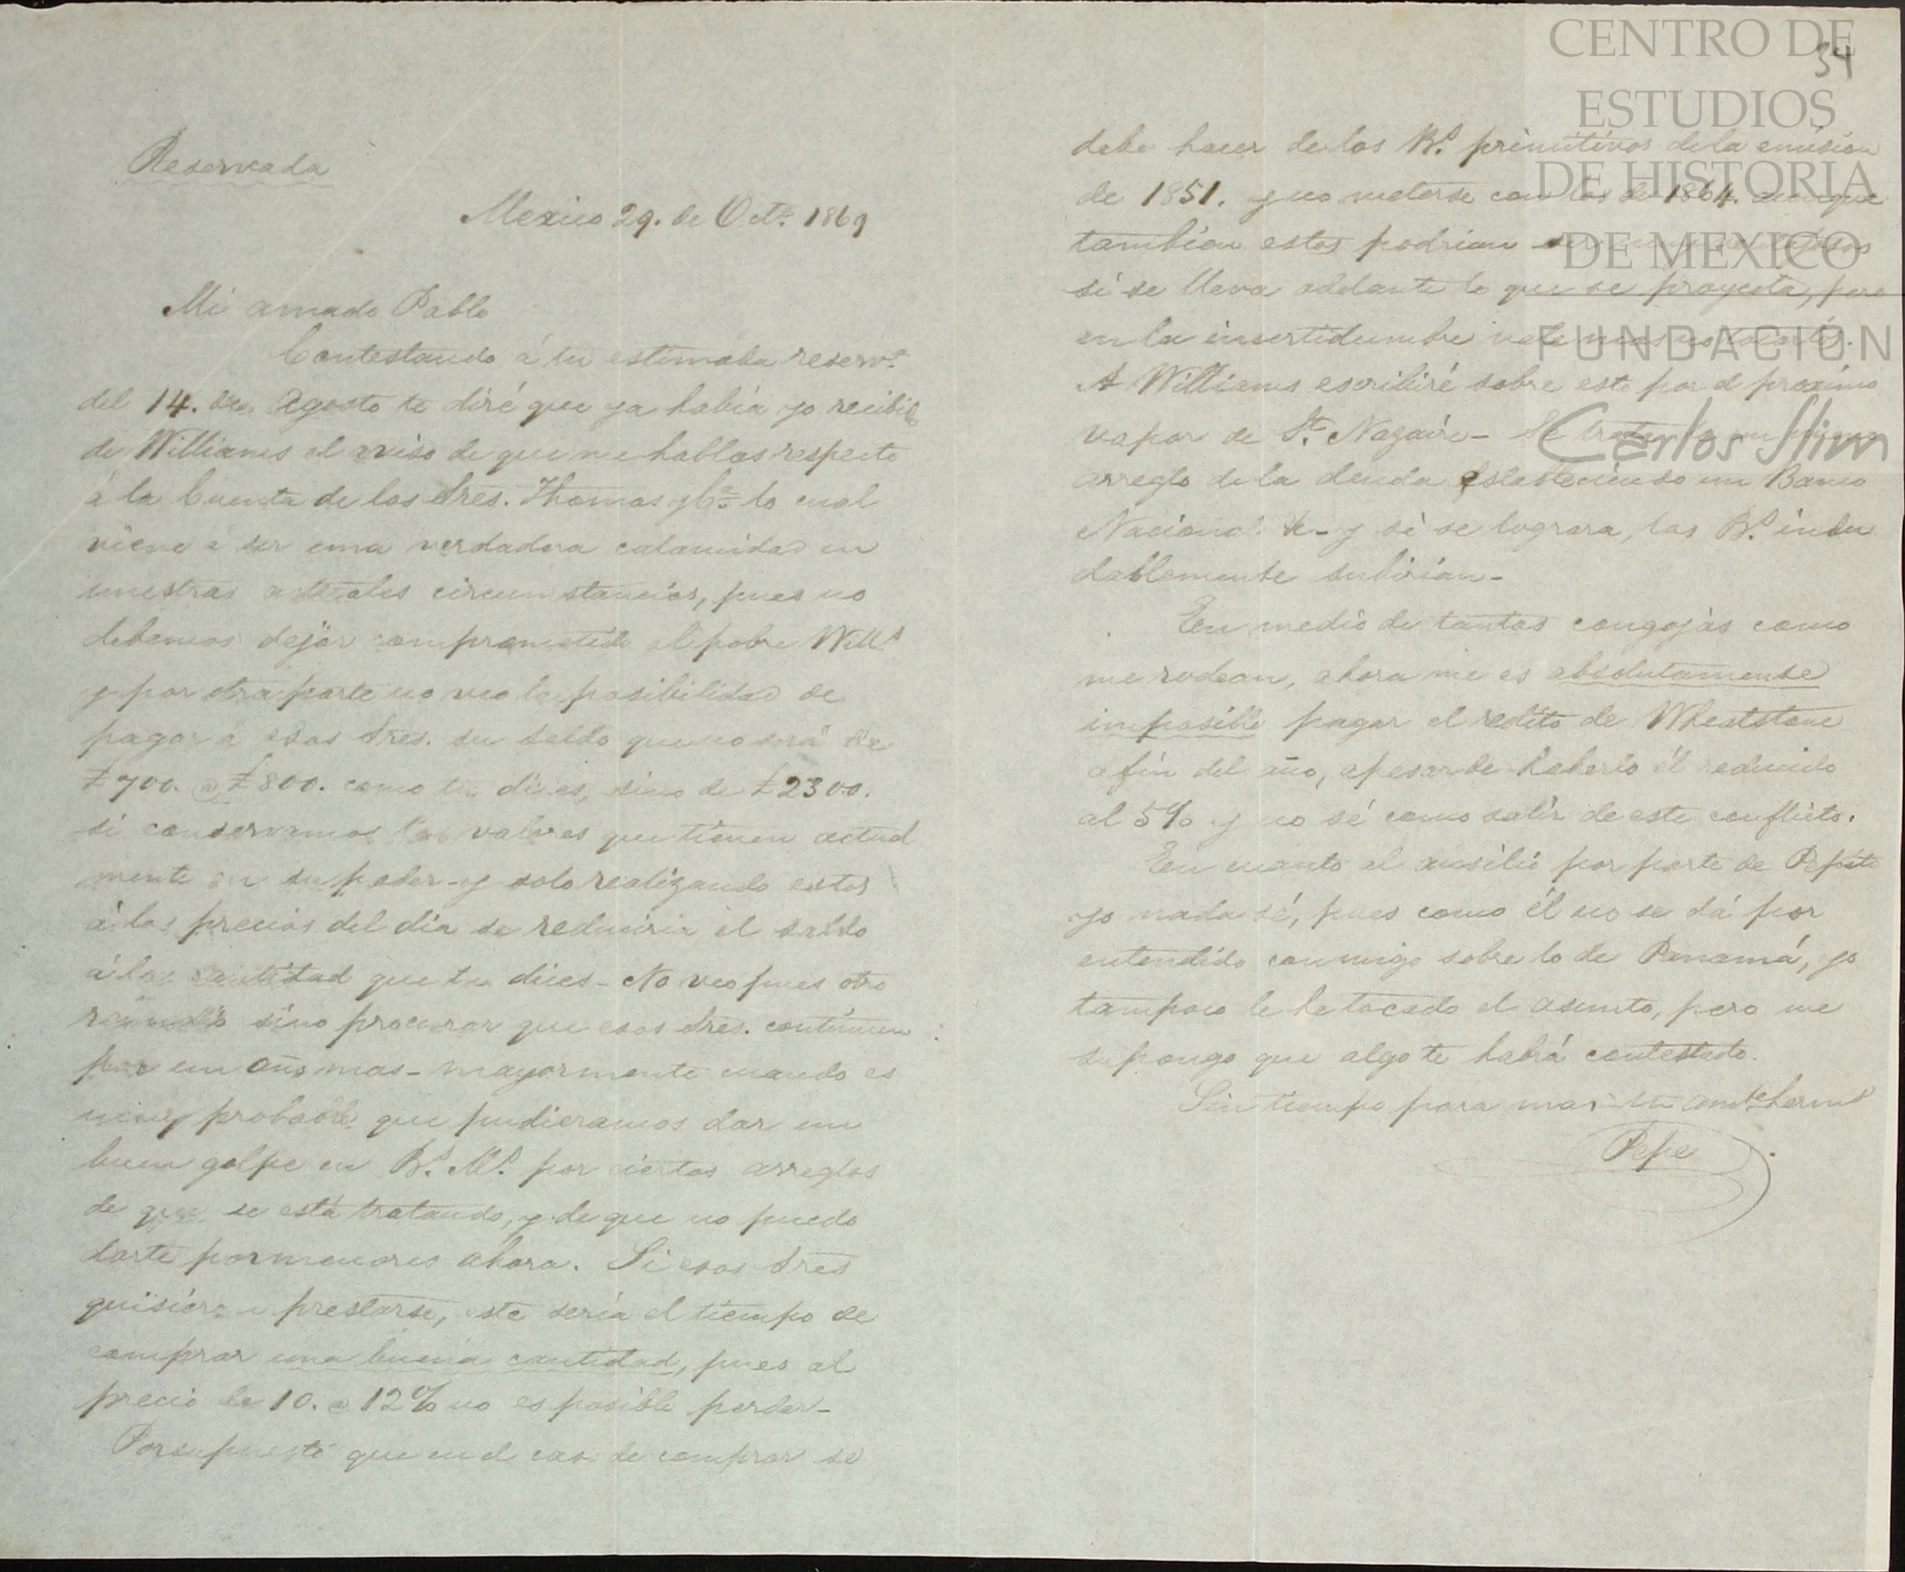 Reservada
Mexico 29. de Oct.e 1869
Mi amado Pablo
Contestando á tu estimada reserv.a
del 14. de Agosto te diré que ya había yo recibido
de Williams el aviso de que me hablas respecto
á la Cuenta de los Sres. Thomas y C.a lo cual
viene á ser una verdadera calamidad en
nuestras actuales circunstancias, pues no
debemos dejar comprometido al pobre Will.s
y por otra parte no veo la posibilidad de
pagar á esos Sres. su saldo que no será de
£700. @ £800. como tu dices, sino de £2300.
si conservamos los valores que tienen actual
mente en su poder - y solo realizando estos
á los precios del día se reduciria el saldo
á la cantidad que tu dices - No veo pues otro
remedio sino procurar que esos Sres. continuen
por un año mas - mayormente cuando es
muy probable que pudieramos dar un
buen golpe en B.s M.s por ciertos arreglos
de que se está tratando, y de que no puedo
darte pormenores ahora. Si esos Sres
quisieran prestarse, este sería el tiempo de
comprar una buena cantidad, pues al
precio de 10. @ 12% no es posible perder -
Por supuesto que en el caso de comprar se
34
debe hacer de los B.s primitivos de la emisión
de 1851. y no meterse con los de 1864. aunque
tambien estos podrian ser
si se lleva adelante lo que se proyecta, pero
en la insertidumbre vale mas no
A Williams escribiré sobre esto por el proximo
vapor de S.t Nazaire - Se trata de un
arreglo de la deuda estableciendo un Banco
Nacional &c - y si se lograra, los B.s indu
dablemente subirían -
En medio de tantas congojas como
me rodean, ahora me es absolutamente
imposible pagar el redito de Wheatstone
a fin del año, apesar de haberlo él reducido
al 5% y no sé como salir de este conflicto.
En cuanto al ausilio por parte de Pepito
yo nada sé, pues como él no se dá por
entendido conmigo sobre lo de Panamá, yo
tampoco le he tocado el asunto, pero me
supongo que algo te habrá contestado.
Sin tiempo para mas - tu am.te herm.o
Pepe
CENTRO DE
ESTUDIOS
DE HISTORIA
DE MEXICO
FUNDACIÓN
Carlos Slim